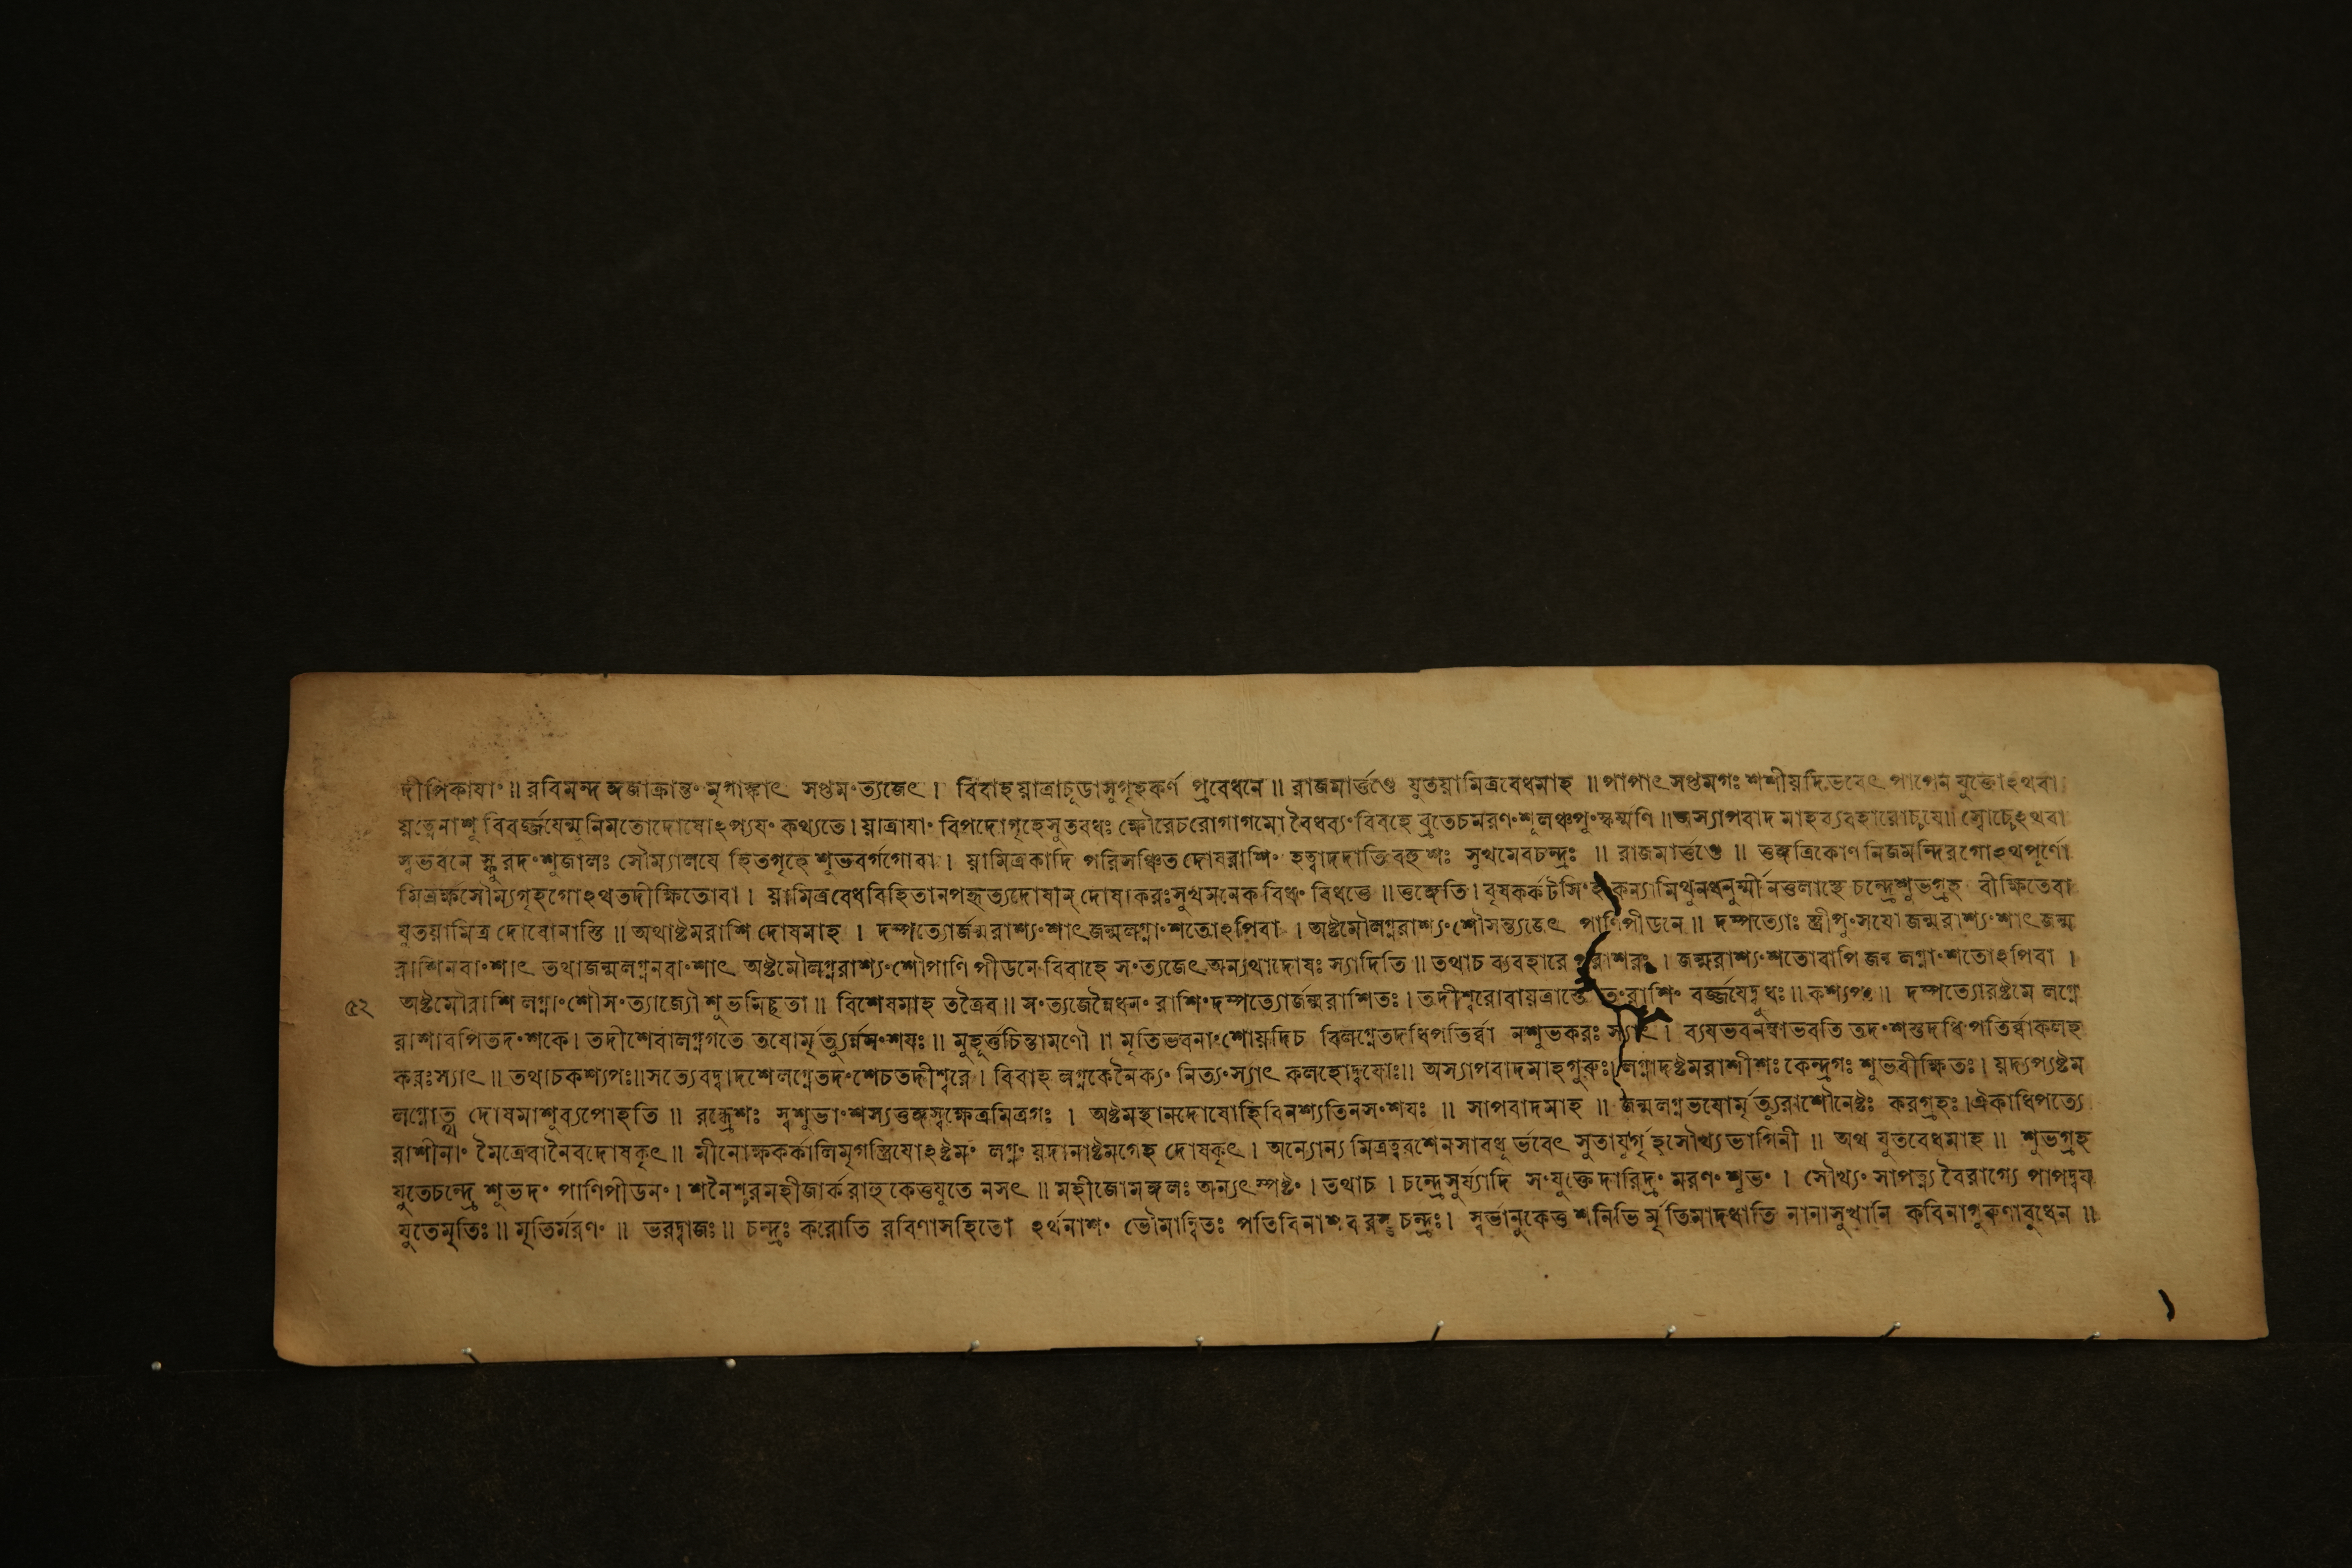 দীপিকাযা° ॥ রবিমন্দ ঙ্গজাক্রান্ত° মৃগাঙ্কাৎ সপ্তম°ত্যজেৎ । বিবাহয়াত্রাচূডাসুগৃহকর্ণ প্রবেধনে ॥ রাজমার্ত্তণ্ডে যুতয়ামিত্রবেধমাহ ॥ পাপাৎসপ্তমগঃ শশীয়দিভবেৎ পাপেন যুক্তোঽথবা
য়ত্নেনাশু বিবর্জ্জযেন্মুনিমতোদোষোঽপ্যয° কথ্যতে। য়াত্রাযা° বিপদোগৃহেসুতবধঃ ক্ষৌরেচরোগাগমো বৈধব্য°বিবহে ব্রতেচমরণ°শূলঞ্চপু°স্কর্ম্মণি ॥ অস্যাপবাদ মাহব্যবহারোচযে॥ স্বোচ্চেঽথবা
স্বভবনে স্ফুরদ°শুজালঃ সৌম্যালযে হিতগৃহে শুভবর্গগোবা । য়ামিত্রকাদি পরিসঞ্চিত দোষরাশি° হত্বাদদাতিবহুশঃ সুখমেবচন্দ্রঃ ॥ রাজমার্ত্তণ্ডে ॥ ত্তঙ্গত্রিকোণ নিজমন্দিরগোঽথপূর্ণো
মিত্রর্ক্ষসৌম্যগৃহগোঽথতদীক্ষিতোবা । য়ামিত্রবেধবিহিতানপহৃত্যদোষান্ দোষাকরঃসুখমনেকবিধ° বিধত্তে ॥ ত্তঙ্গেতি। বৃষকর্কটসি°হকন্যামিথুনধনুর্ম্মীনত্তলাস্থে চন্দ্রেশুভগ্রহ বীক্ষিতেবা
যুতয়ামিত্র দোষোনাস্তি ॥ অথাষ্টমরাশি দোষমাহ । দম্পত্যোর্জন্মরাশ্য°শাৎজন্মলগ্না°শতোঽপিবা । অষ্টমৌলগ্নরাশ্য°শৌসন্ত্যজেৎ পাণিপীডনে ॥ দম্পত্যোঃ স্ত্রীপু°সযো জন্মরাশ্য°শাৎজন্ম
রাশিনবা°শাৎ তথাজন্মলগ্ননবা°শাৎ অষ্টমৌলগ্নরাশ্য°শৌপাণি পীডনে বিবাহে স°ত্যজেৎঅন্যথাদোষঃ স্যাদিতি ॥ তথাচ ব্যবহারে পরাশরঃ । জন্মরাশ্য°শতোবাপি জন্ম লগ্না°শতোঽপিবা ।
৫২ অষ্টমৌরাশি লগ্না°শৌস°ত্যাজ্যৌ শুভমিচ্ছতা ॥ বিশেষমাহ তত্রৈব ॥ স°ত্যজেন্নৈধন° রাশি°দম্পত্যোর্জন্মরাশিতঃ । তদীশ্বরোবায়ত্রাস্তে ত°রাশি° বর্জ্জযেদ্বুধঃ ॥ কশ্যপঃ ॥ দম্পত্যোরষ্টমে লগ্নে
রাশাবপিতদ°শকে। তদীশেবালগ্নগতে তযোর্মৃত্যুর্ন্নস°শযঃ ॥ মুহূর্ত্তচিন্তামণৌ ॥ মৃতিভবনা°শোয়দিচ বিলগ্নেতদধিপতির্ব্বা নশুভকরঃ স্যাৎ । ব্যযভবনম্বাভবতি তদ°শস্তদধিপতির্ব্বাকলহ
করঃস্যাৎ ॥ তথাচকশ্যপঃ॥ সত্যেবদ্বাদশেলগ্নেতদ°শেচতদীশ্বরে । বিবাহ লগ্নকেনৈক্য° নিত্য°স্যাৎ কলহোদ্বযোঃ॥ অস্যাপবাদমাহগুরুঃ। লগ্নাদষ্টমরাশীশঃ কেন্দ্রগঃ শুভবীক্ষিতঃ। য়দ্যপ্যষ্টম
লগ্নোত্থ দোষমাশুব্যপোহতি ॥ রন্ধ্রেশঃ স্বশুভা°শস্যত্তঙ্গস্বক্ষেত্রমিত্রগঃ । অষ্টমস্থানদোষোহিবিনশ্যতিনস°শযঃ ॥ সাপবাদমাহ ॥ জন্মলগ্নভযোর্মৃত্যুরাশৌনেষ্টঃ করগ্রহঃ। ঐকাধিপত্যে
রাশীনা° মৈত্রেবানৈবদোষকৃৎ ॥ মীনোক্ষকর্কালিমৃগস্ত্রিযোঽষ্টম° লগ্ন° য়দানাষ্টমগেহ দোষকৃৎ । অন্যোন্য মিত্রত্বরশেনসাবধূ র্ভবেৎ সুতাযুর্গৃহসৌখ্যভাগিনী ॥ অথ যুতবেধমাহ ॥ শুভগ্রহ
যুতেচন্দ্রে শুভদ° পাণিপীডন° । শনৈশ্চরমহীজার্করাহুকেত্তযুতে নসৎ ॥ মহীজোমঙ্গলঃ অন্যৎস্পষ্ট° । তথাচ । চন্দ্রেসুর্য্যাদি স°যুক্তেদারিদ্র° মরণ° শূভ° । সৌখ্য° সাপত্ন্য বৈরাগ্যে পাপদ্বয
যুতেমৃতিঃ ॥ মৃতির্মরণ° ॥ ভরদ্বাজঃ ॥ চন্দ্রঃ করোতি রবিণাসহিতো ঽর্থনাশ° ভৌমান্বিতঃ পতিবিনাশ চন্দ্রঃ। স্বর্ভানুকেত্ত শনিভি র্মৃতিমাদধাতি নানাসুখানি কবিনাগুরুণাবুধেন ॥